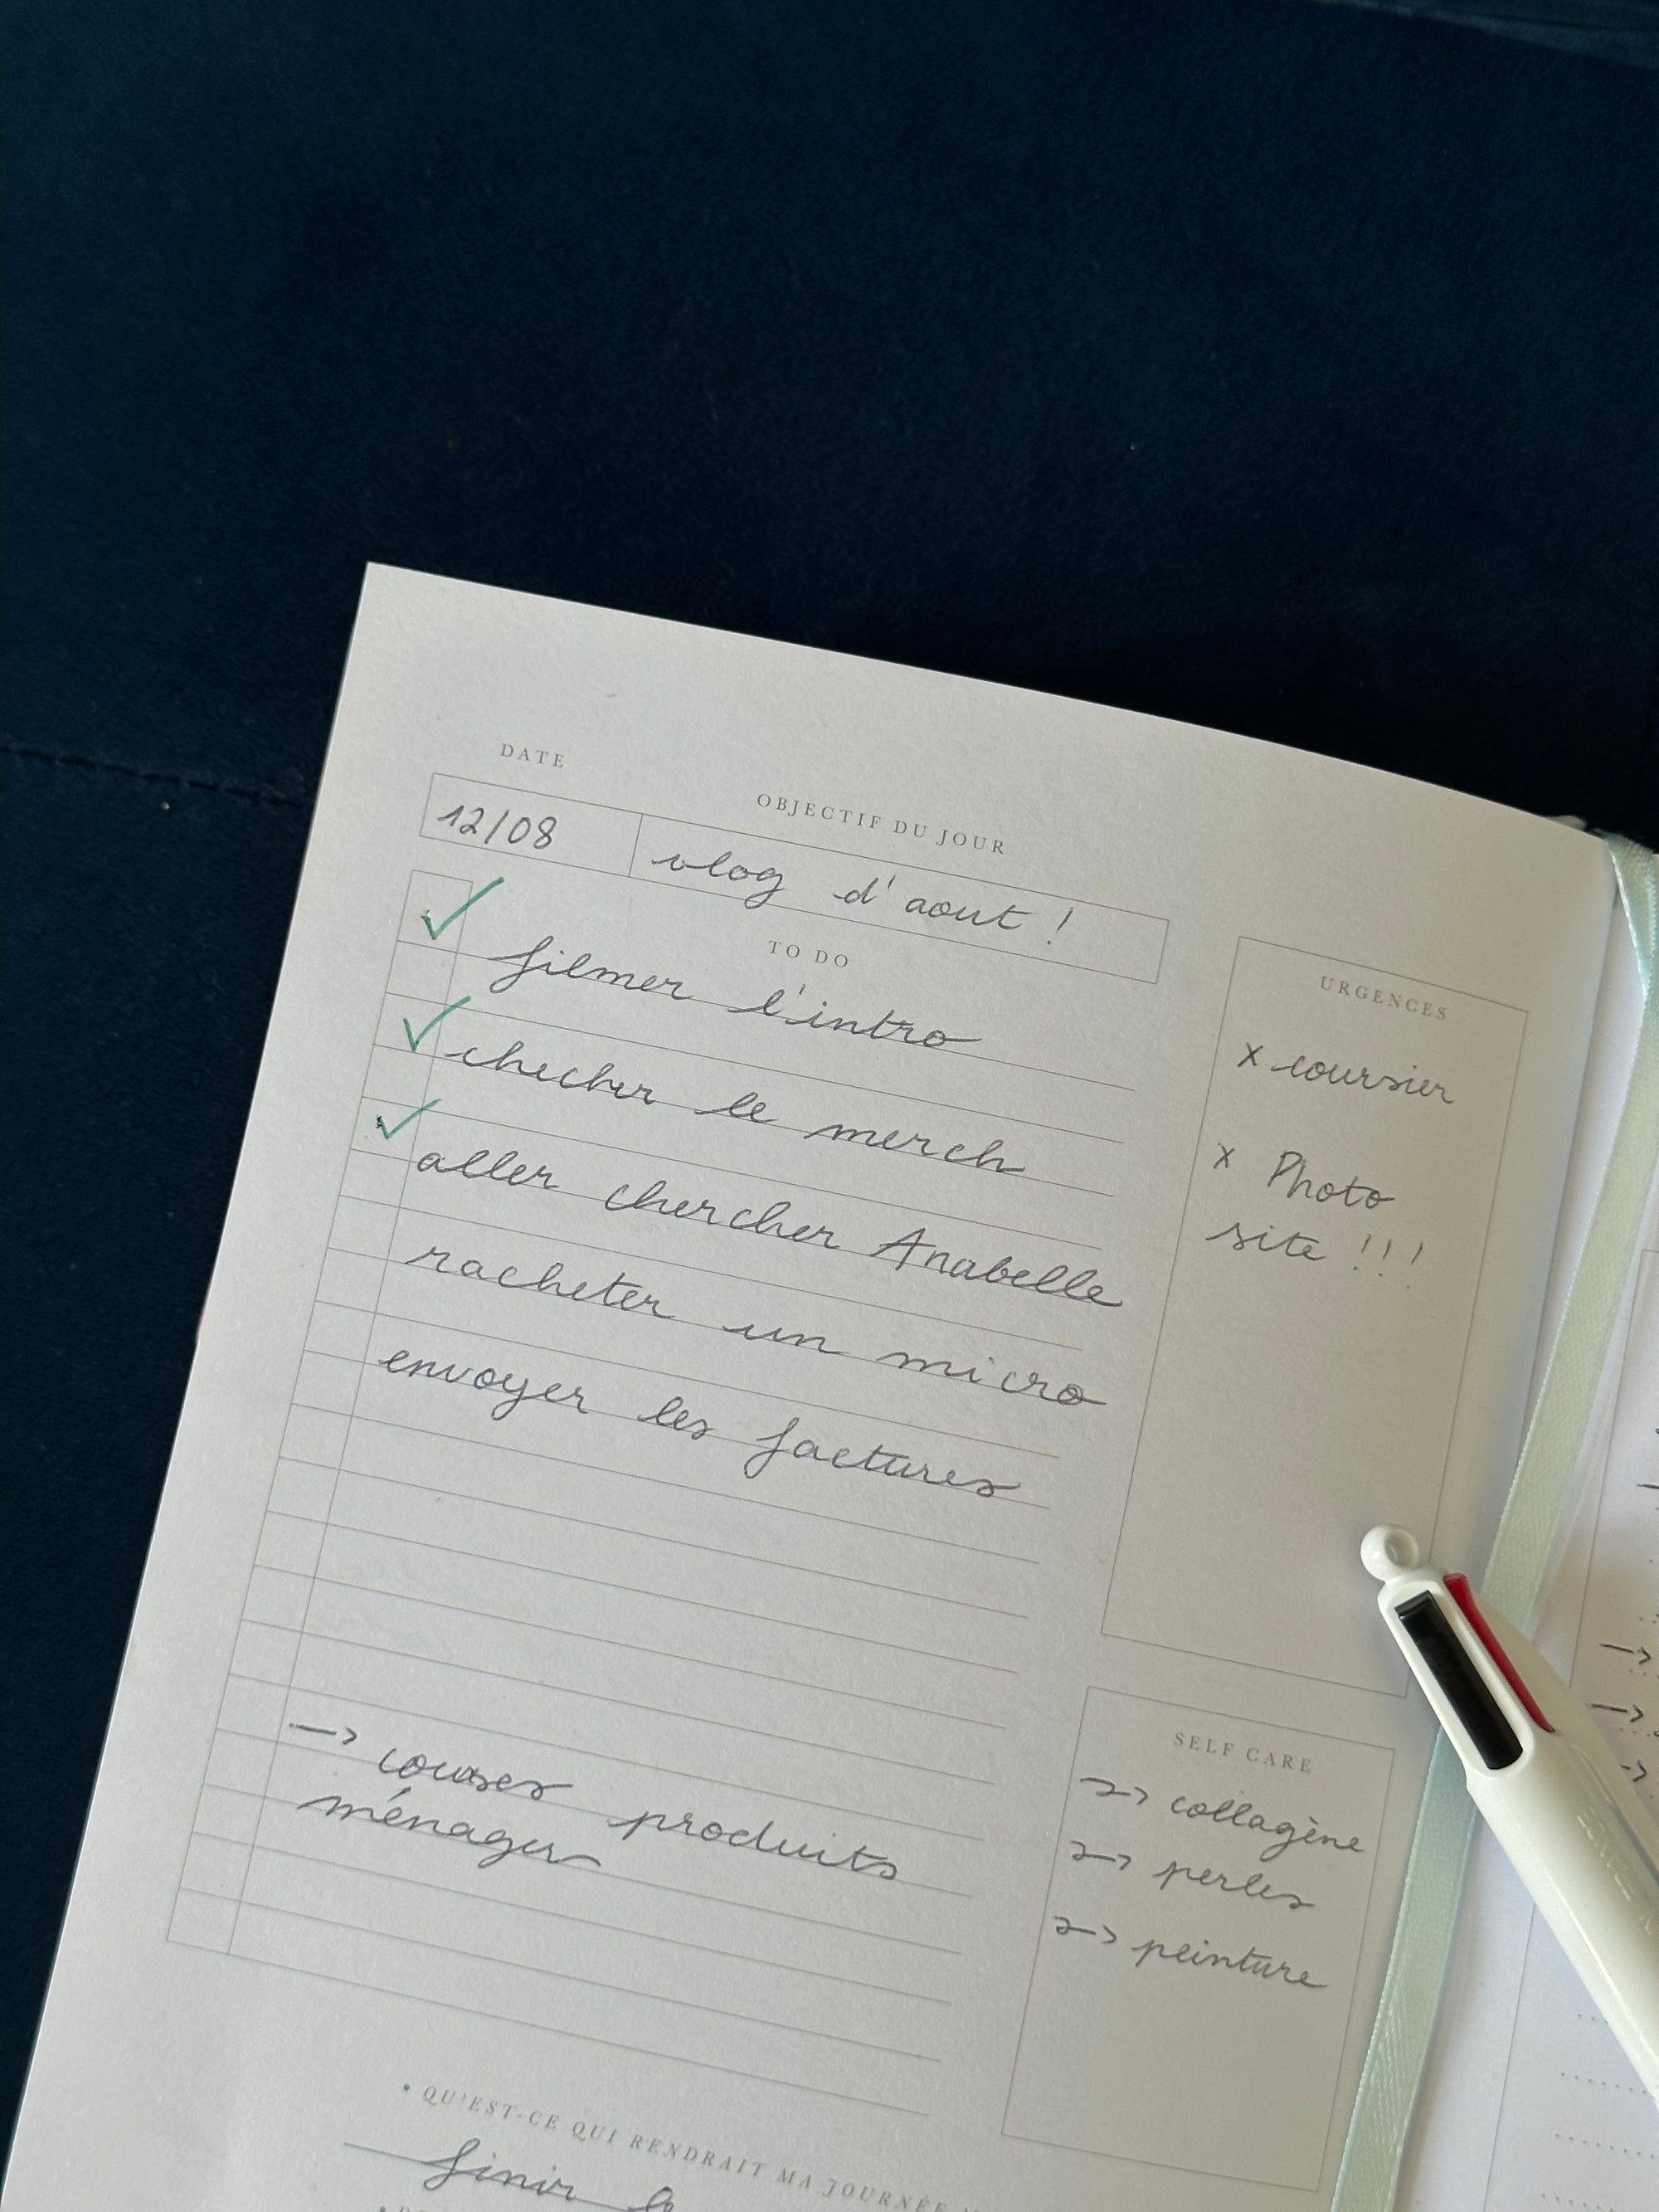 DATE
OBJECTIF DU JOUR
12/08
vlog d'aout !
TO DO
filmer l'intro
checher le merch
aller chercher Anabelle
racheter un micro
envoyer les factures
→ courses produits
ménager
URGENCES
x coursier
x Photo
site !!!
SELF CARE
→ collagène
→ perles
→ peinture
• QU'EST-CE QUI RENDRAIT MA JOURNÉE
finir le